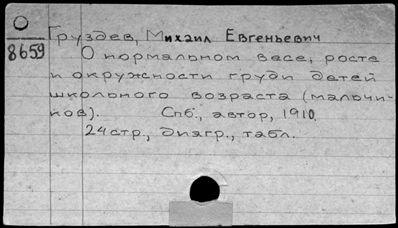 О
8659
Груздев, Михаил Евгеньевич
О нормальном весе, росте
и окружности груди детей
школьного возраста (мальчи-
ков). Спб., автор, 1910.
24 стр., диагр., табл.